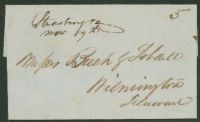 Strasburg
Nov 19th
5
Messrs Bush &
Wilmington
Delaware